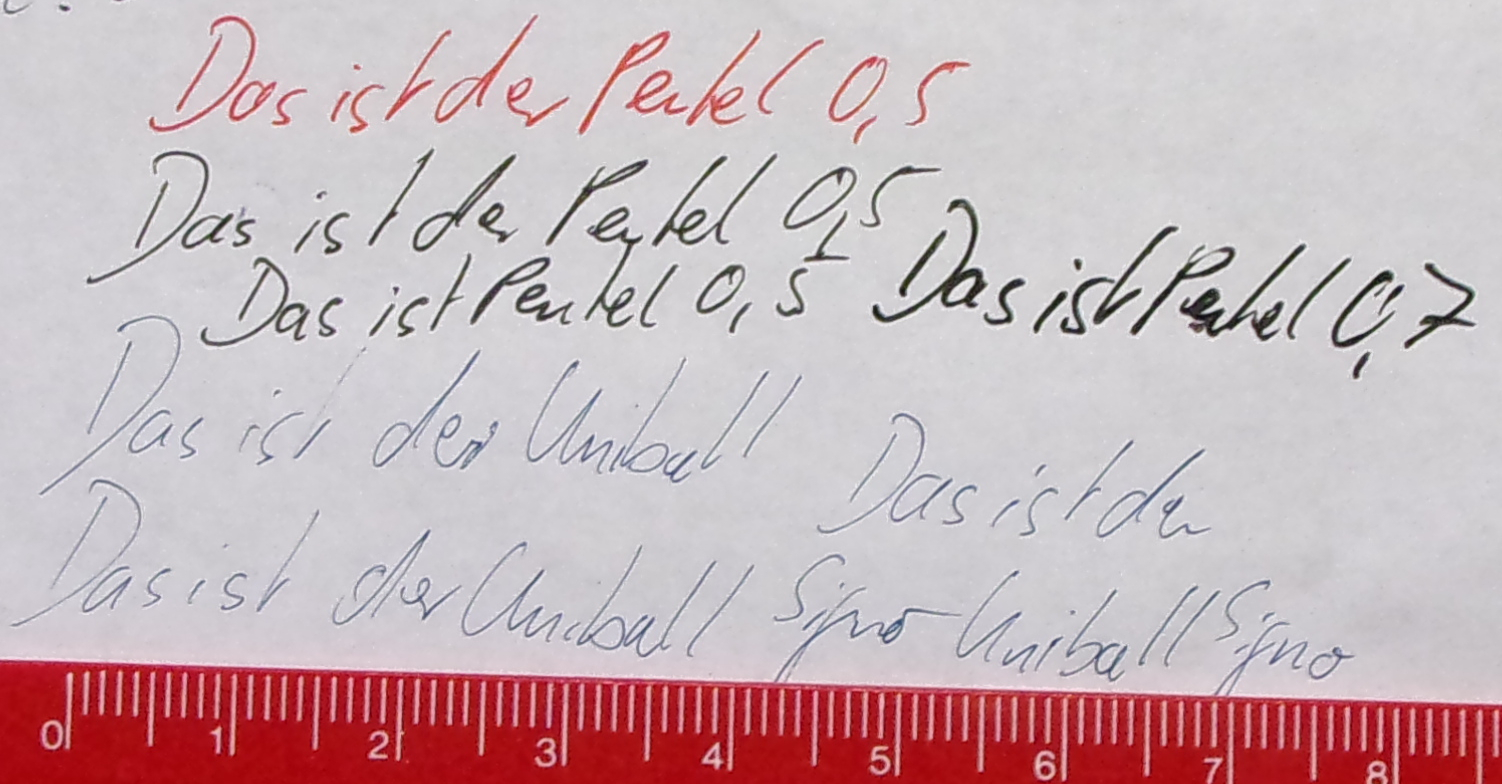 Das ist der Pentel 0,5
Das ist der Pentel 0,5
Das ist Pentel 0,5 Das ist Pentel 0,7
Das ist der Uniball
Das ist der
Das ist der Uniball Signo Uniball Signo
0 1 2 3 4 5 6 7 8